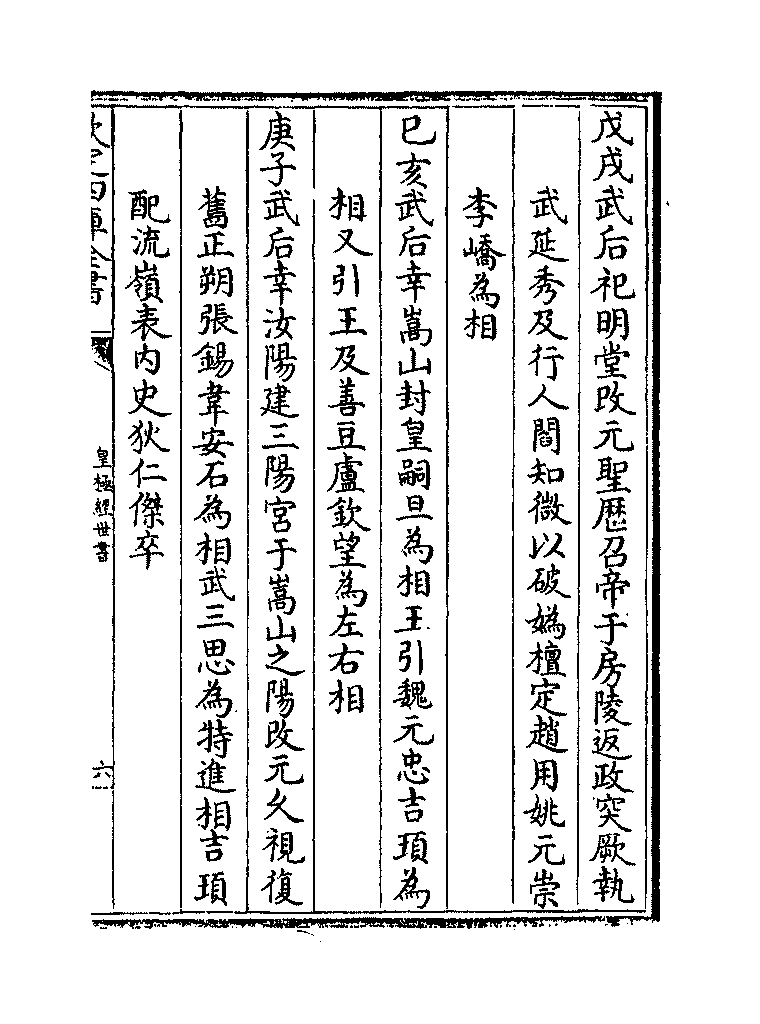 戊戌武后祀明堂改元聖厯召帝于房陵返政突厥執
武延秀及行人閻知微以破媯檀定趙用姚元崇
李嶠為相
巳亥武后幸嵩山封皇嗣旦為相王引魏元忠吉頊為
相又引王及善豆盧欽望為左右相
庚子武后幸汝陽建三陽宮于嵩山之陽改元久視復
舊正朔張錫韋安石為相武三思為特進相吉頊
配流嶺表内史狄仁傑卒
欽定四庫全書
皇極經世書
六